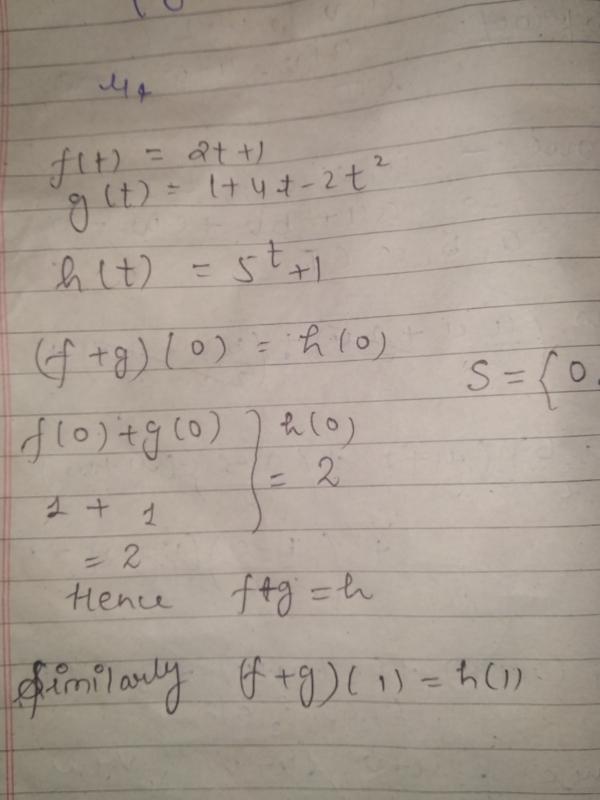 f(t) = 2t+1
g(t) = 1+4t-2t²
h(t) = 5^t+1
(f+g)(0) = h(0)
S = {0,
f(0)+g(0) } h(0)
= 2
1 + 1
= 2
Hence f+g = h
Similarly (f+g)(1) = h(1)